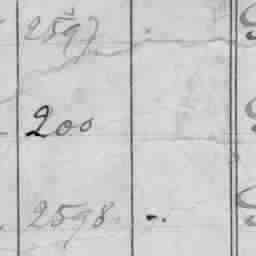 2597
200
2598 -.